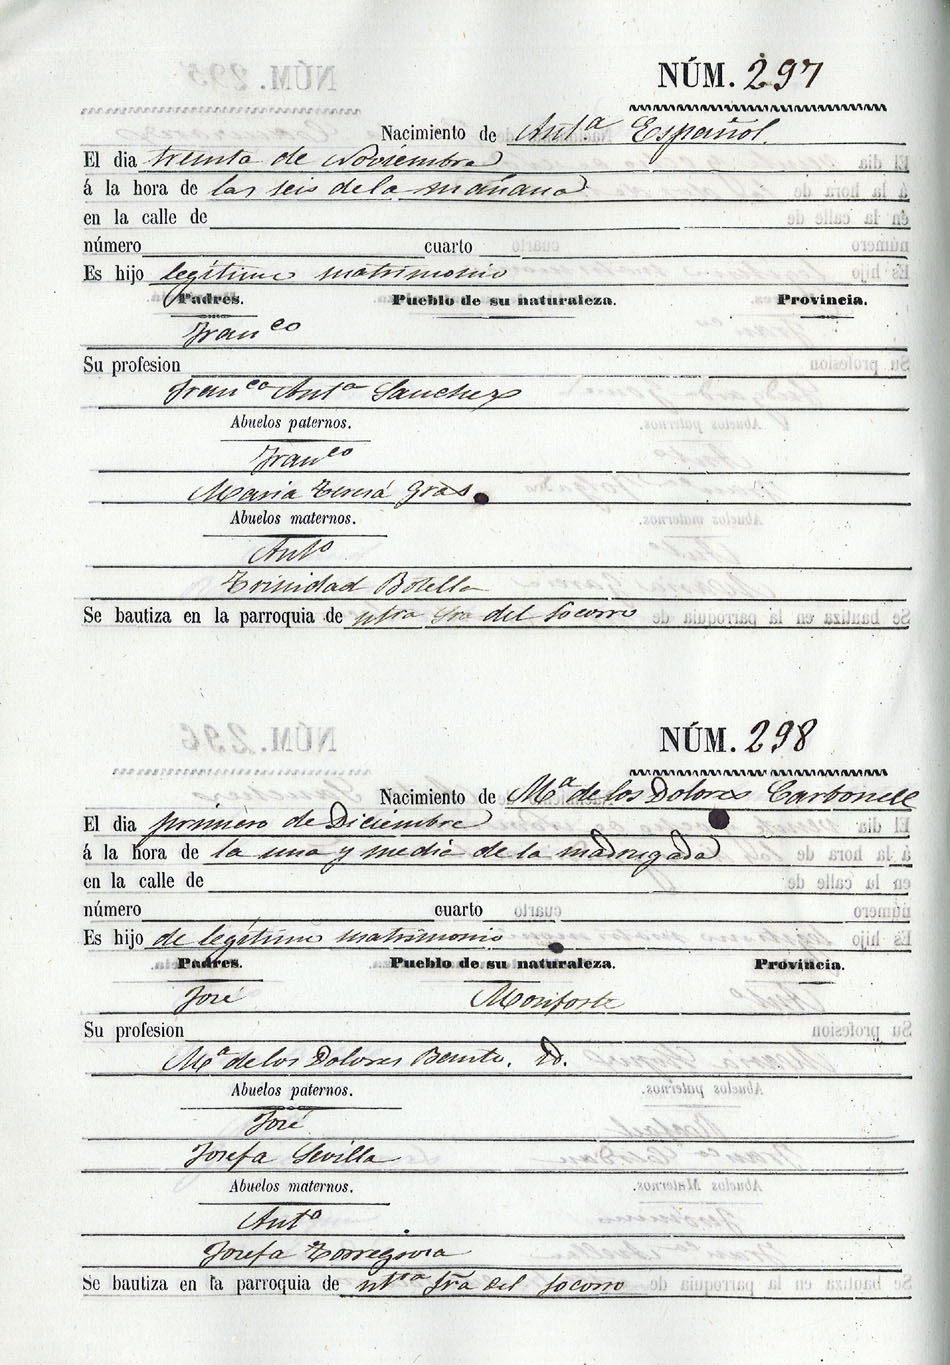 NÚM. 297
Nacimiento de Antª Español.
El dia treinta de Noviembre
á la hora de las seis de la mañana
en la calle de
número cuarto
Es hijo legítimo matrimonio
Padres. Pueblo de su naturaleza. Provincia.
Franco
Su profesion
Franca Antª Sanchez
Abuelos paternos.
Franco
Maria Teresá Gras
Abuelos maternos.
Anto
Trinidad Botella
Se bautiza en la parroquia de ntra Sra del Socorro
NÚM. 298
Nacimiento de Mª de los Dolores Carbonell
El dia primero de Diciembre
á la hora de la una y media de la madrugada
en la calle de
número cuarto
Es hijo de legítimo matrimonio
Padres. Pueblo de su naturaleza. Provincia.
José Monforte
Su profesion
Mª de los Dolores Benito. Id.
Abuelos paternos.
José
Josefa Sevilla
Abuelos maternos.
Anto
Josefa Torregrosa
Se bautiza en la parroquia de ntra Sra del Socorro